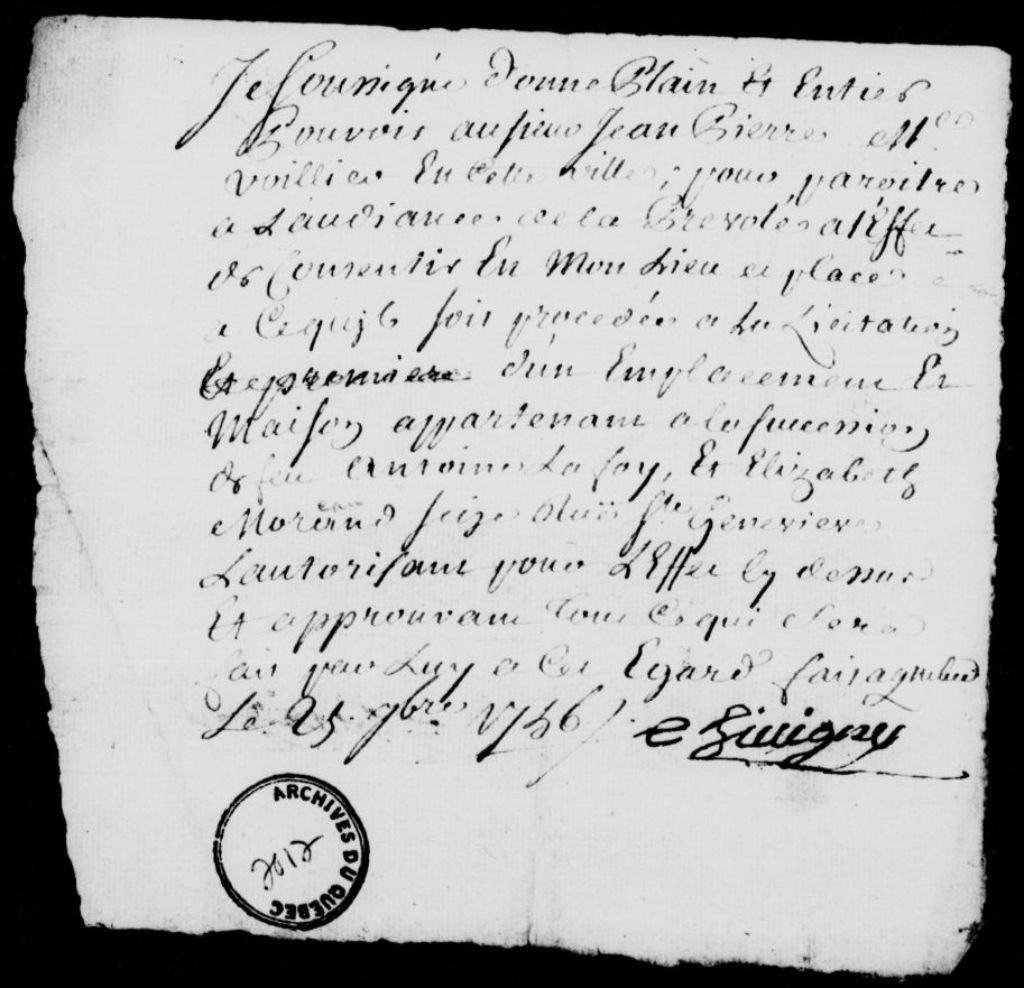 Je Soussigné donne Plain Et Entier
Pouvoir au sieur Jean Pierre Me
voillier En Cette ville, pour paroitre
a L'audiance de la Prevoté a l'Effet
de Consentir En Mon Lieu et place
a Cequil soit procedée a La Licitation
d'un Emplacement Et
Maison appartenant a la succession
de feu Antoine La foy, Et Elizabeth
Morand size Ruë Ste Genevieve
Lautorisant pour L'Effet Cy dessus
Et approuvant Tout Ce qui Sera
fait par Luy a Cet Egard fait a quebec
Le 25 7bre 1756
ARCHIVES DU QUÉBEC